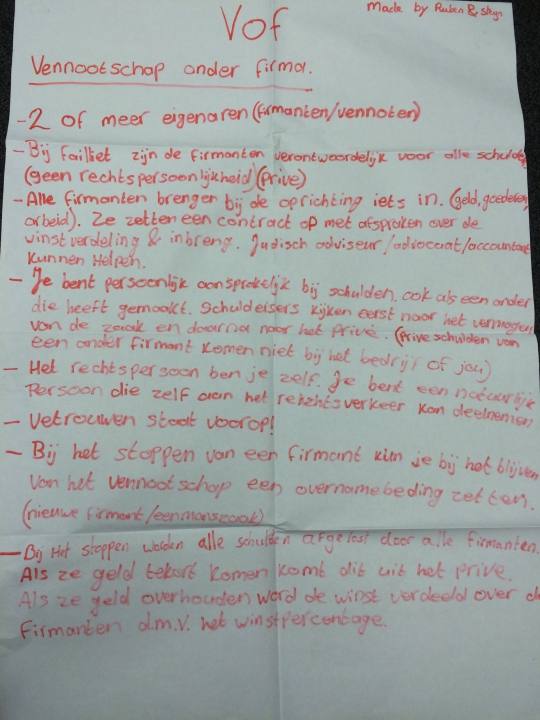 Made by Ruben & Stijn
Vof
Vennootschap onder firma.
- 2 of meer eigenaren (firmanten/vennoten)
- Bij failliet zijn de firmanten verantwoordelijk voor alle schulden
(geen rechtspersoonlijkheid) (privé)
- Alle firmanten brengen bij de oprichting iets in. (geld, goederen,
arbeid). Ze zetten een contract op met afspraken over de
winstverdeling & inbreng. Judisch adviseur/advocaat/accountant
kunnen Helpen.
- Je bent persoonlijk aansprakelijk bij schulden, ook als een ander
die heeft gemaakt. Schuldeisers kijken eerst naar het vermogen
van de zaak en daarna naar het privé. (Privé schulden van
een ander firmant komen niet bij het bedrijf of jou)
- Het rechtspersoon ben je zelf. Je bent een natuurlijk
Persoon die zelf aan het rehzhtsverkeer kan deelnemen
- Vetrouwen staat voorop!
- Bij het stoppen van een firmant kun je bij het blijven
van het vennootschap een overnamebeding zetten.
(nieuwe firmant/eenmanszaak)
- Bij Het stoppen worden alle schulden afgelost door alle firmanten.
Als ze geld tekort komen komt dit uit het privé.
Als ze geld overhouden word de winst verdeeld over de
Firmanten d.m.v. het winstpercentage.